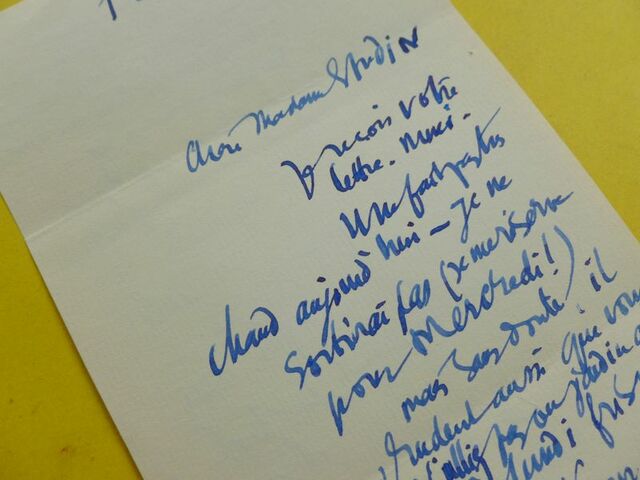 Chère Madame Studin
Je reçois votre
lettre. Merci.
Il ne fait pas très
chaud aujourd'hui - Je ne
sortirai pas (je me réserve
pour mercredi!)
mais sans doute il
prudent aussi que vous
n'alliez pas au jardin
lundi